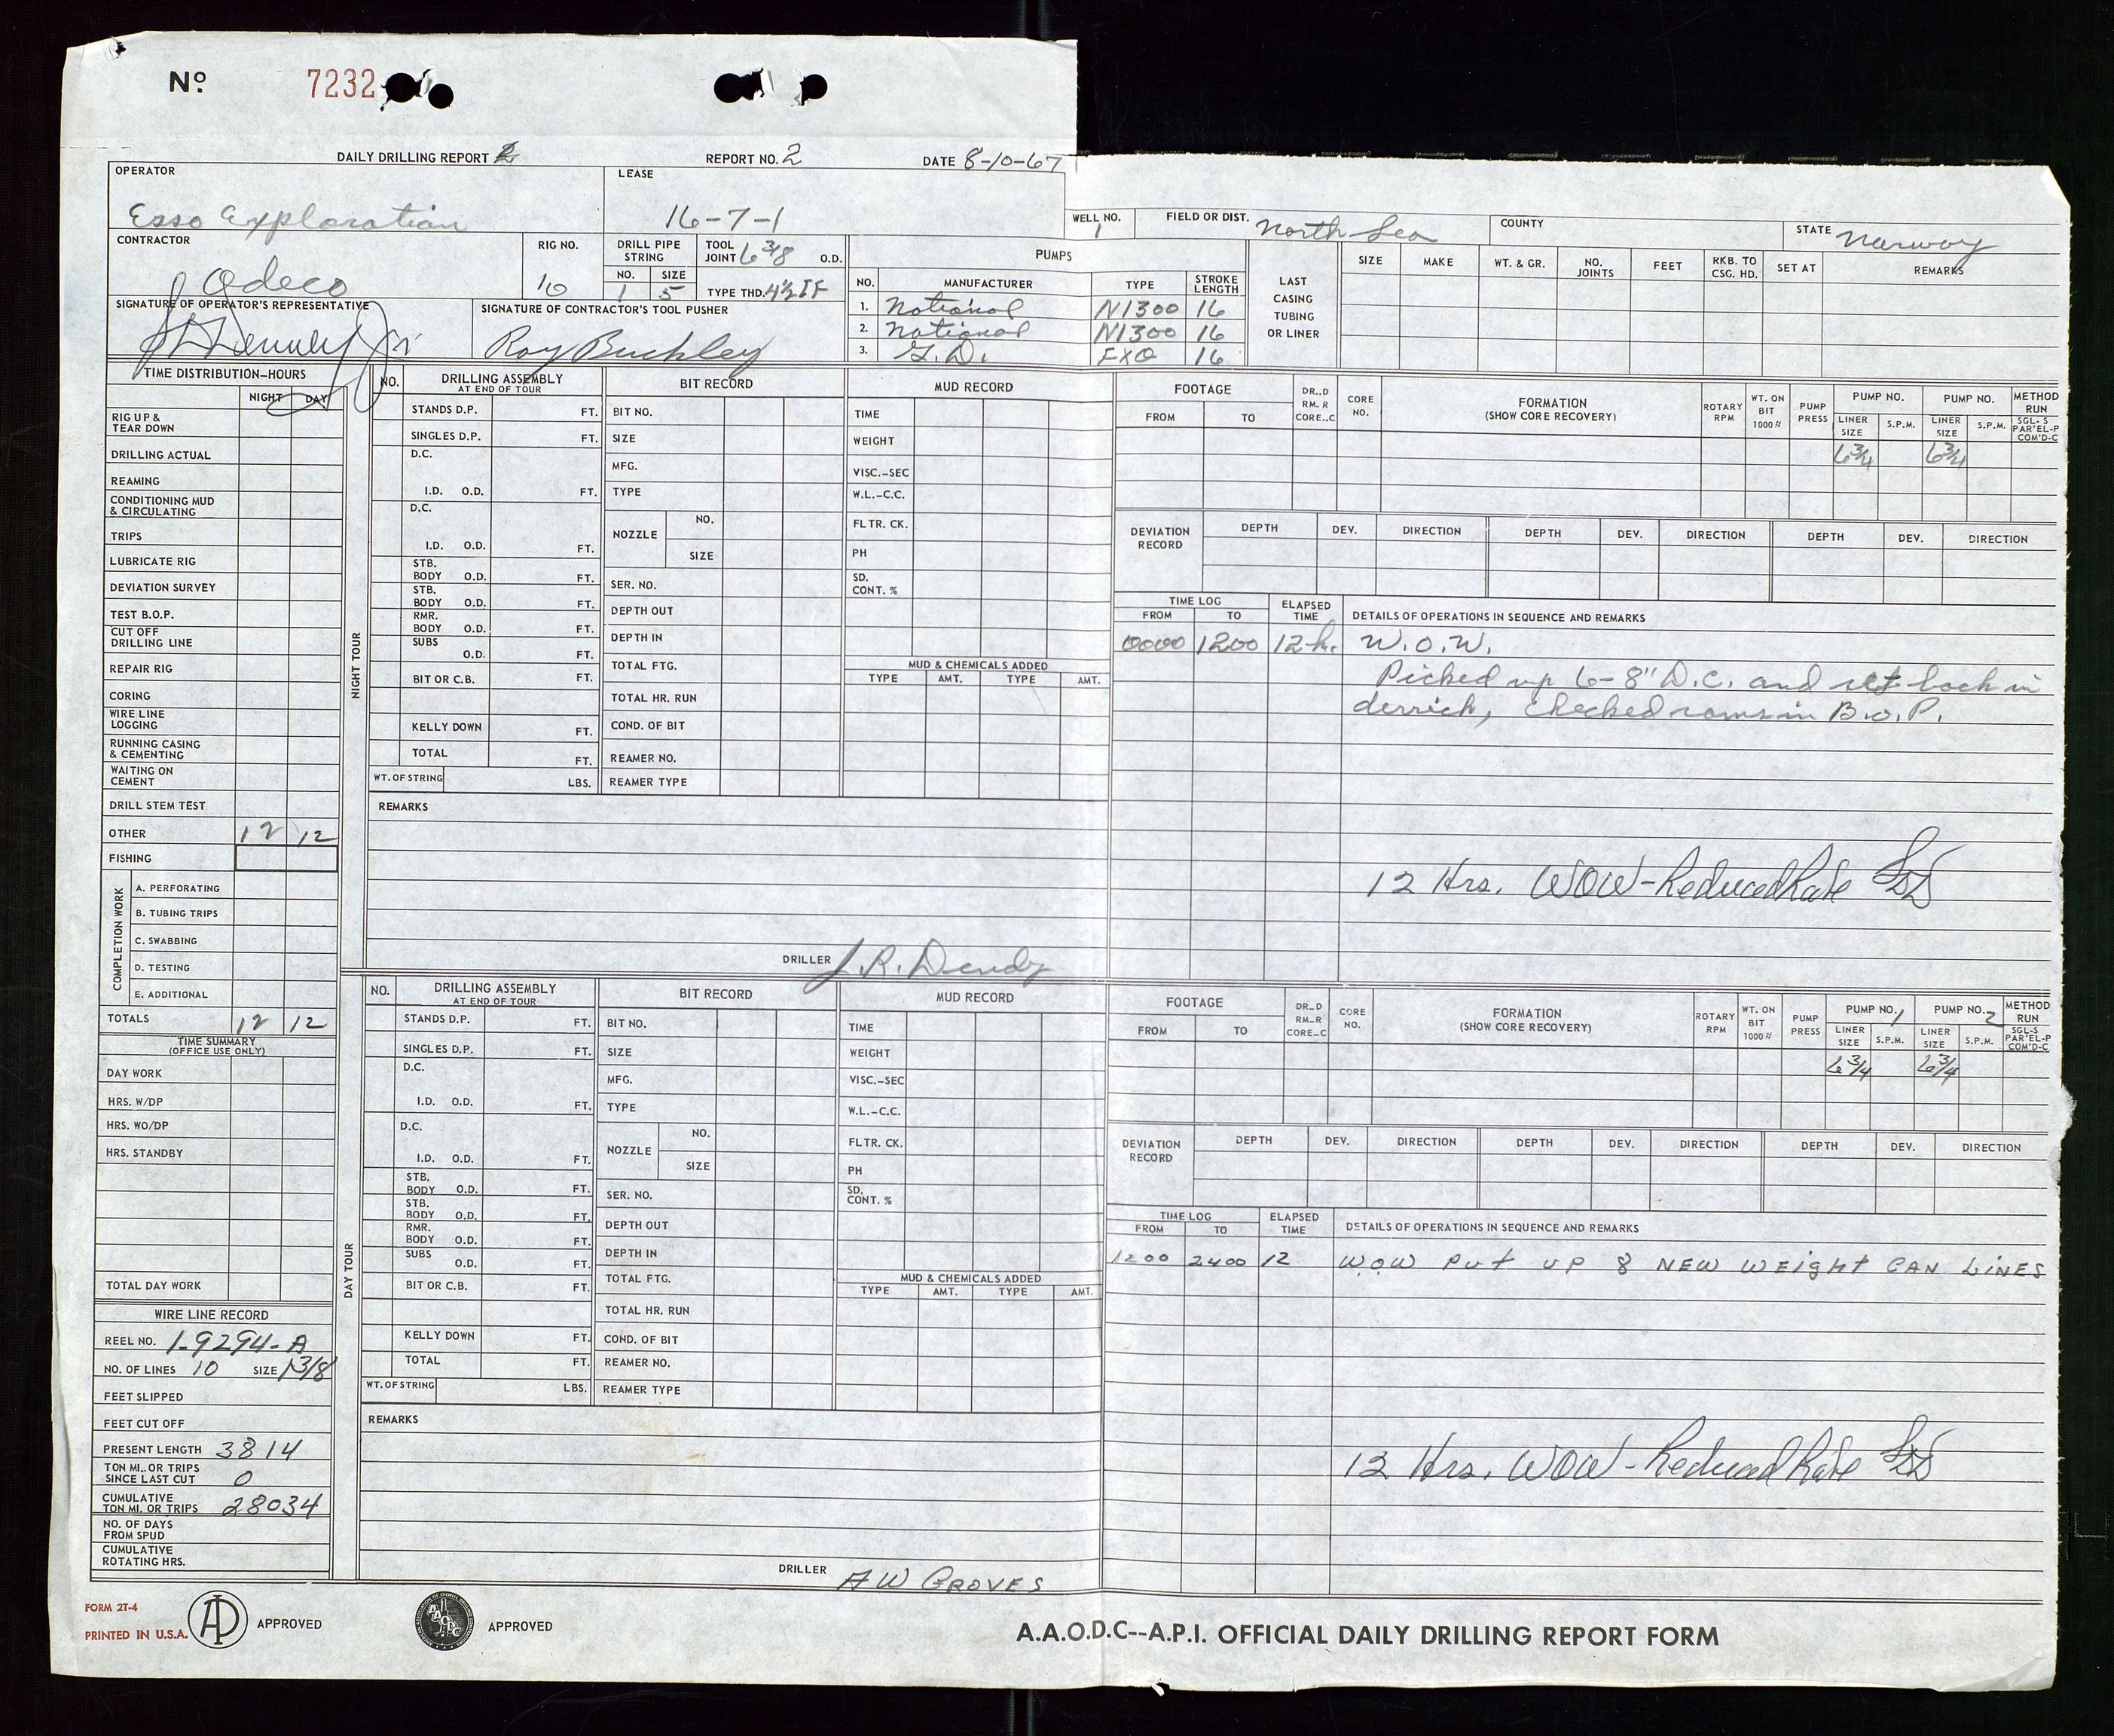 Nº 7232
DAILY DRILLING REPORT REPORT NO. 2 DATE 8-10-67
OPERATOR Esso Exploration
LEASE 16-7-1
WELL NO. 1
FIELD OR DIST. North Sea
COUNTY
STATE Norway
CONTRACTOR Odeco
RIG NO. 10
DRILL PIPE STRING NO. 1 SIZE 5
TOOL JOINT 6 3/8 O.D.
TYPE THD. 4½ IF
SIGNATURE OF OPERATOR'S REPRESENTATIVE
SIGNATURE OF CONTRACTOR'S TOOL PUSHER
Roy Buckley
PUMPS
NO. MANUFACTURER TYPE STROKE LENGTH
1. National N1300 16
2. National N1300 16
3. G.D. FXO 16
LAST CASING TUBING OR LINER
SIZE MAKE WT. & GR. NO. JOINTS FEET RKB. TO CSG. HD. SET AT REMARKS
TIME DISTRIBUTION-HOURS
NIGHT DAY
RIG UP & TEAR DOWN
DRILLING ACTUAL
REAMING
CONDITIONING MUD & CIRCULATING
TRIPS
LUBRICATE RIG
DEVIATION SURVEY
TEST B.O.P.
CUT OFF DRILLING LINE
REPAIR RIG
CORING
WIRE LINE LOGGING
RUNNING CASING & CEMENTING
WAITING ON CEMENT
DRILL STEM TEST
OTHER 12 12
FISHING
COMPLETION WORK
A. PERFORATING
B. TUBING TRIPS
C. SWABBING
D. TESTING
E. ADDITIONAL
TOTALS 12 12
TIME SUMMARY (OFFICE USE ONLY)
DAY WORK
HRS. W/DP
HRS. WO/DP
HRS. STANDBY
TOTAL DAY WORK
WIRE LINE RECORD
REEL NO. 1-9294-A
NO. OF LINES 10 SIZE 1 3/8
FEET SLIPPED
FEET CUT OFF
PRESENT LENGTH 3814
TON MI. OR TRIPS SINCE LAST CUT 0
CUMULATIVE TON MI. OR TRIPS 28034
NO. OF DAYS FROM SPUD
CUMULATIVE ROTATING HRS.
NIGHT TOUR
NO. DRILLING ASSEMBLY AT END OF TOUR
STANDS D.P. FT.
SINGLES D.P. FT.
D.C.
I.D. O.D. FT.
D.C.
I.D. O.D. FT.
STB. BODY O.D. FT.
STB. BODY O.D. FT.
RMR. BODY O.D. FT.
SUBS O.D. FT.
BIT OR C.B. FT.
KELLY DOWN FT.
TOTAL FT.
WT. OF STRING LBS.
BIT RECORD
BIT NO.
SIZE
MFG.
TYPE
NOZZLE NO.
SIZE
SER. NO.
DEPTH OUT
DEPTH IN
TOTAL FTG.
TOTAL HR. RUN
COND. OF BIT
REAMER NO.
REAMER TYPE
MUD RECORD
TIME
WEIGHT
VISC.-SEC
W.L.-C.C.
FLTR. CK.
PH
SD. CONT. %
MUD & CHEMICALS ADDED
TYPE AMT. TYPE AMT.
REMARKS
DRILLER J.R. Dendy
FOOTAGE FROM TO
DR..D RM.R CORE..C
CORE NO.
FORMATION (SHOW CORE RECOVERY)
ROTARY RPM
WT. ON BIT 1000 #
PUMP PRESS
PUMP NO. LINER SIZE S.P.M.
PUMP NO. LINER SIZE S.P.M.
METHOD RUN SGL-S PAR'EL-P COM'D-C
6 3/4 6 3/4
DEVIATION RECORD
DEPTH DEV. DIRECTION DEPTH DEV. DIRECTION DEPTH DEV. DIRECTION
TIME LOG FROM TO ELAPSED TIME DETAILS OF OPERATIONS IN SEQUENCE AND REMARKS
0000 1200 12 hr. W.O.W.
Picked up 6-8" D.C. and set back in
derrick, checked rams in B.O.P.
12 Hrs. WOW-Reduced Rate
DAY TOUR
NO. DRILLING ASSEMBLY AT END OF TOUR
STANDS D.P. FT.
SINGLES D.P. FT.
D.C.
I.D. O.D. FT.
D.C.
I.D. O.D. FT.
STB. BODY O.D. FT.
STB. BODY O.D. FT.
RMR. BODY O.D. FT.
SUBS O.D. FT.
BIT OR C.B. FT.
KELLY DOWN FT.
TOTAL FT.
WT. OF STRING LBS.
BIT RECORD
BIT NO.
SIZE
MFG.
TYPE
NOZZLE NO.
SIZE
SER. NO.
DEPTH OUT
DEPTH IN
TOTAL FTG.
TOTAL HR. RUN
COND. OF BIT
REAMER NO.
REAMER TYPE
MUD RECORD
TIME
WEIGHT
VISC.-SEC
W.L.-C.C.
FLTR. CK.
PH
SD. CONT. %
MUD & CHEMICALS ADDED
TYPE AMT. TYPE AMT.
REMARKS
DRILLER A W GROVES
FOOTAGE FROM TO
DR...D RM...R CORE...C
CORE NO.
FORMATION (SHOW CORE RECOVERY)
ROTARY RPM
WT. ON BIT 1000 #
PUMP PRESS
PUMP NO. 1 LINER SIZE S.P.M.
PUMP NO. 2 LINER SIZE S.P.M.
METHOD RUN SGL-S PAR'EL-P COM'D-C
6 3/4 6 3/4
DEVIATION RECORD
DEPTH DEV. DIRECTION DEPTH DEV. DIRECTION DEPTH DEV. DIRECTION
TIME LOG FROM TO ELAPSED TIME DETAILS OF OPERATIONS IN SEQUENCE AND REMARKS
1200 2400 12 W.O.W Put UP 8 NEW WEight CAN LiNES
12 Hrs. WOW-Reduced Rate
FORM 2T-4
PRINTED IN U.S.A.
API APPROVED
AAODC APPROVED
A.A.O.D.C--A.P.I. OFFICIAL DAILY DRILLING REPORT FORM